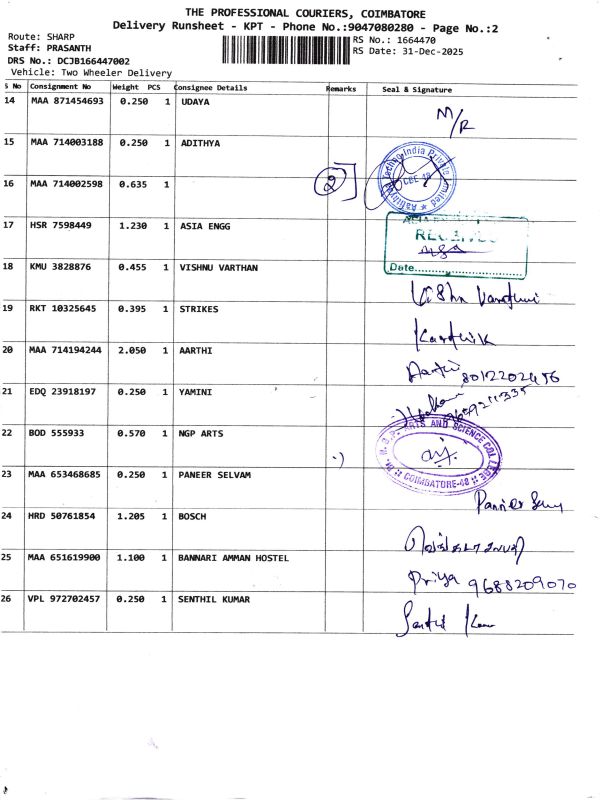 THE PROFESSIONAL COURIERS, COIMBATORE
Delivery Runsheet - KPT - Phone No.:9047080280 - Page No.:2
Route: SHARP
Staff: PRASANTH
DRS No.: DCJB166447002
Vehicle: Two Wheeler Delivery
RS No.: 1664470
RS Date: 31-Dec-2025
S No Consignment No Weight PCS Consignee Details Remarks Seal & Signature
14 MAA 871454693 0.250 1 UDAYA M/R
15 MAA 714003188 0.250 1 ADITHYA
16 MAA 714002598 0.635 1 2
India Private Limited
CBE 48
17 HSR 7598449 1.230 1 ASIA ENGG
RECEIVED
Date
18 KMU 3828876 0.455 1 VISHNU VARTHAN
19 RKT 10325645 0.395 1 STRIKES Karthik
20 MAA 714194244 2.050 1 AARTHI Aarthi 8012202456
21 EDQ 23918197 0.250 1 YAMINI
22 BOD 555933 0.570 1 NGP ARTS
ARTS AND SCIENCE COLLEGE
COIMBATORE-48
23 MAA 653468685 0.250 1 PANEER SELVAM
24 HRD 50761854 1.205 1 BOSCH
25 MAA 651619900 1.100 1 BANNARI AMMAN HOSTEL Priya 9688209070
26 VPL 972702457 0.250 1 SENTHIL KUMAR